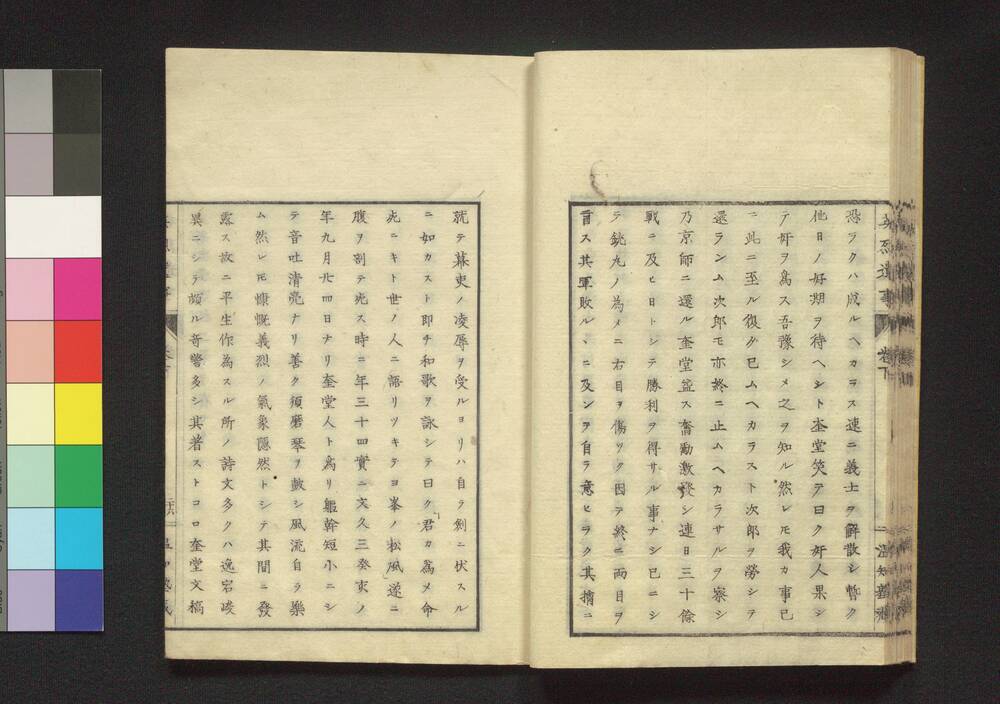 恐ラクハ成ルヘカラス速ニ義士ヲ解散シ暫ク
他日ノ好期ヲ待ヘシト奎堂笑テ曰ク奸人果シ
テ奸ヲ為ス吾豫シメ之ヲ知ル然レモ我カ事已
ニ此ニ至ル復タ已ムヘカラスト次郎ヲ勞シテ
還ランム次郎モ亦終ニ止ムヘカラサルヲ察シ
乃京師ニ還ル奎堂益ス奮勵激發シ連日三十餘
戰ニ及ヒ日トシテ勝利ヲ得サル事ナシ已ニシ
テ銃丸ノ為メニ右目ヲ傷ツク因テ終ニ両目ヲ
盲ス其軍敗ルヽニ及ンテ自ラ意ヒラク其擒ニ
就テ幕吏ノ凌辱ヲ受ルヨリハ自ラ劍ニ伏スル
ニ如カスト即チ和歌ヲ詠シテ曰ク君カ為メ命
死ニキト世ノ人ニ語リツキテヨ峯ノ松風遂ニ
腹ヲ割テ死ス時ニ年三十四實ニ文久三癸亥ノ
年九月廿四日ナリ奎堂人ト為リ軀幹短小ニシ
テ音吐清亮ナリ善ク須磨琴ヲ皷シ風流自ラ樂
ム然レモ慷慨義烈ノ氣象隠然トシテ其間ニ發
露ス故ニ平生作為スル所ノ詩文多クハ逸宕峻
異ニシテ頗ル奇警多シ其著ストコロ奎堂文稿